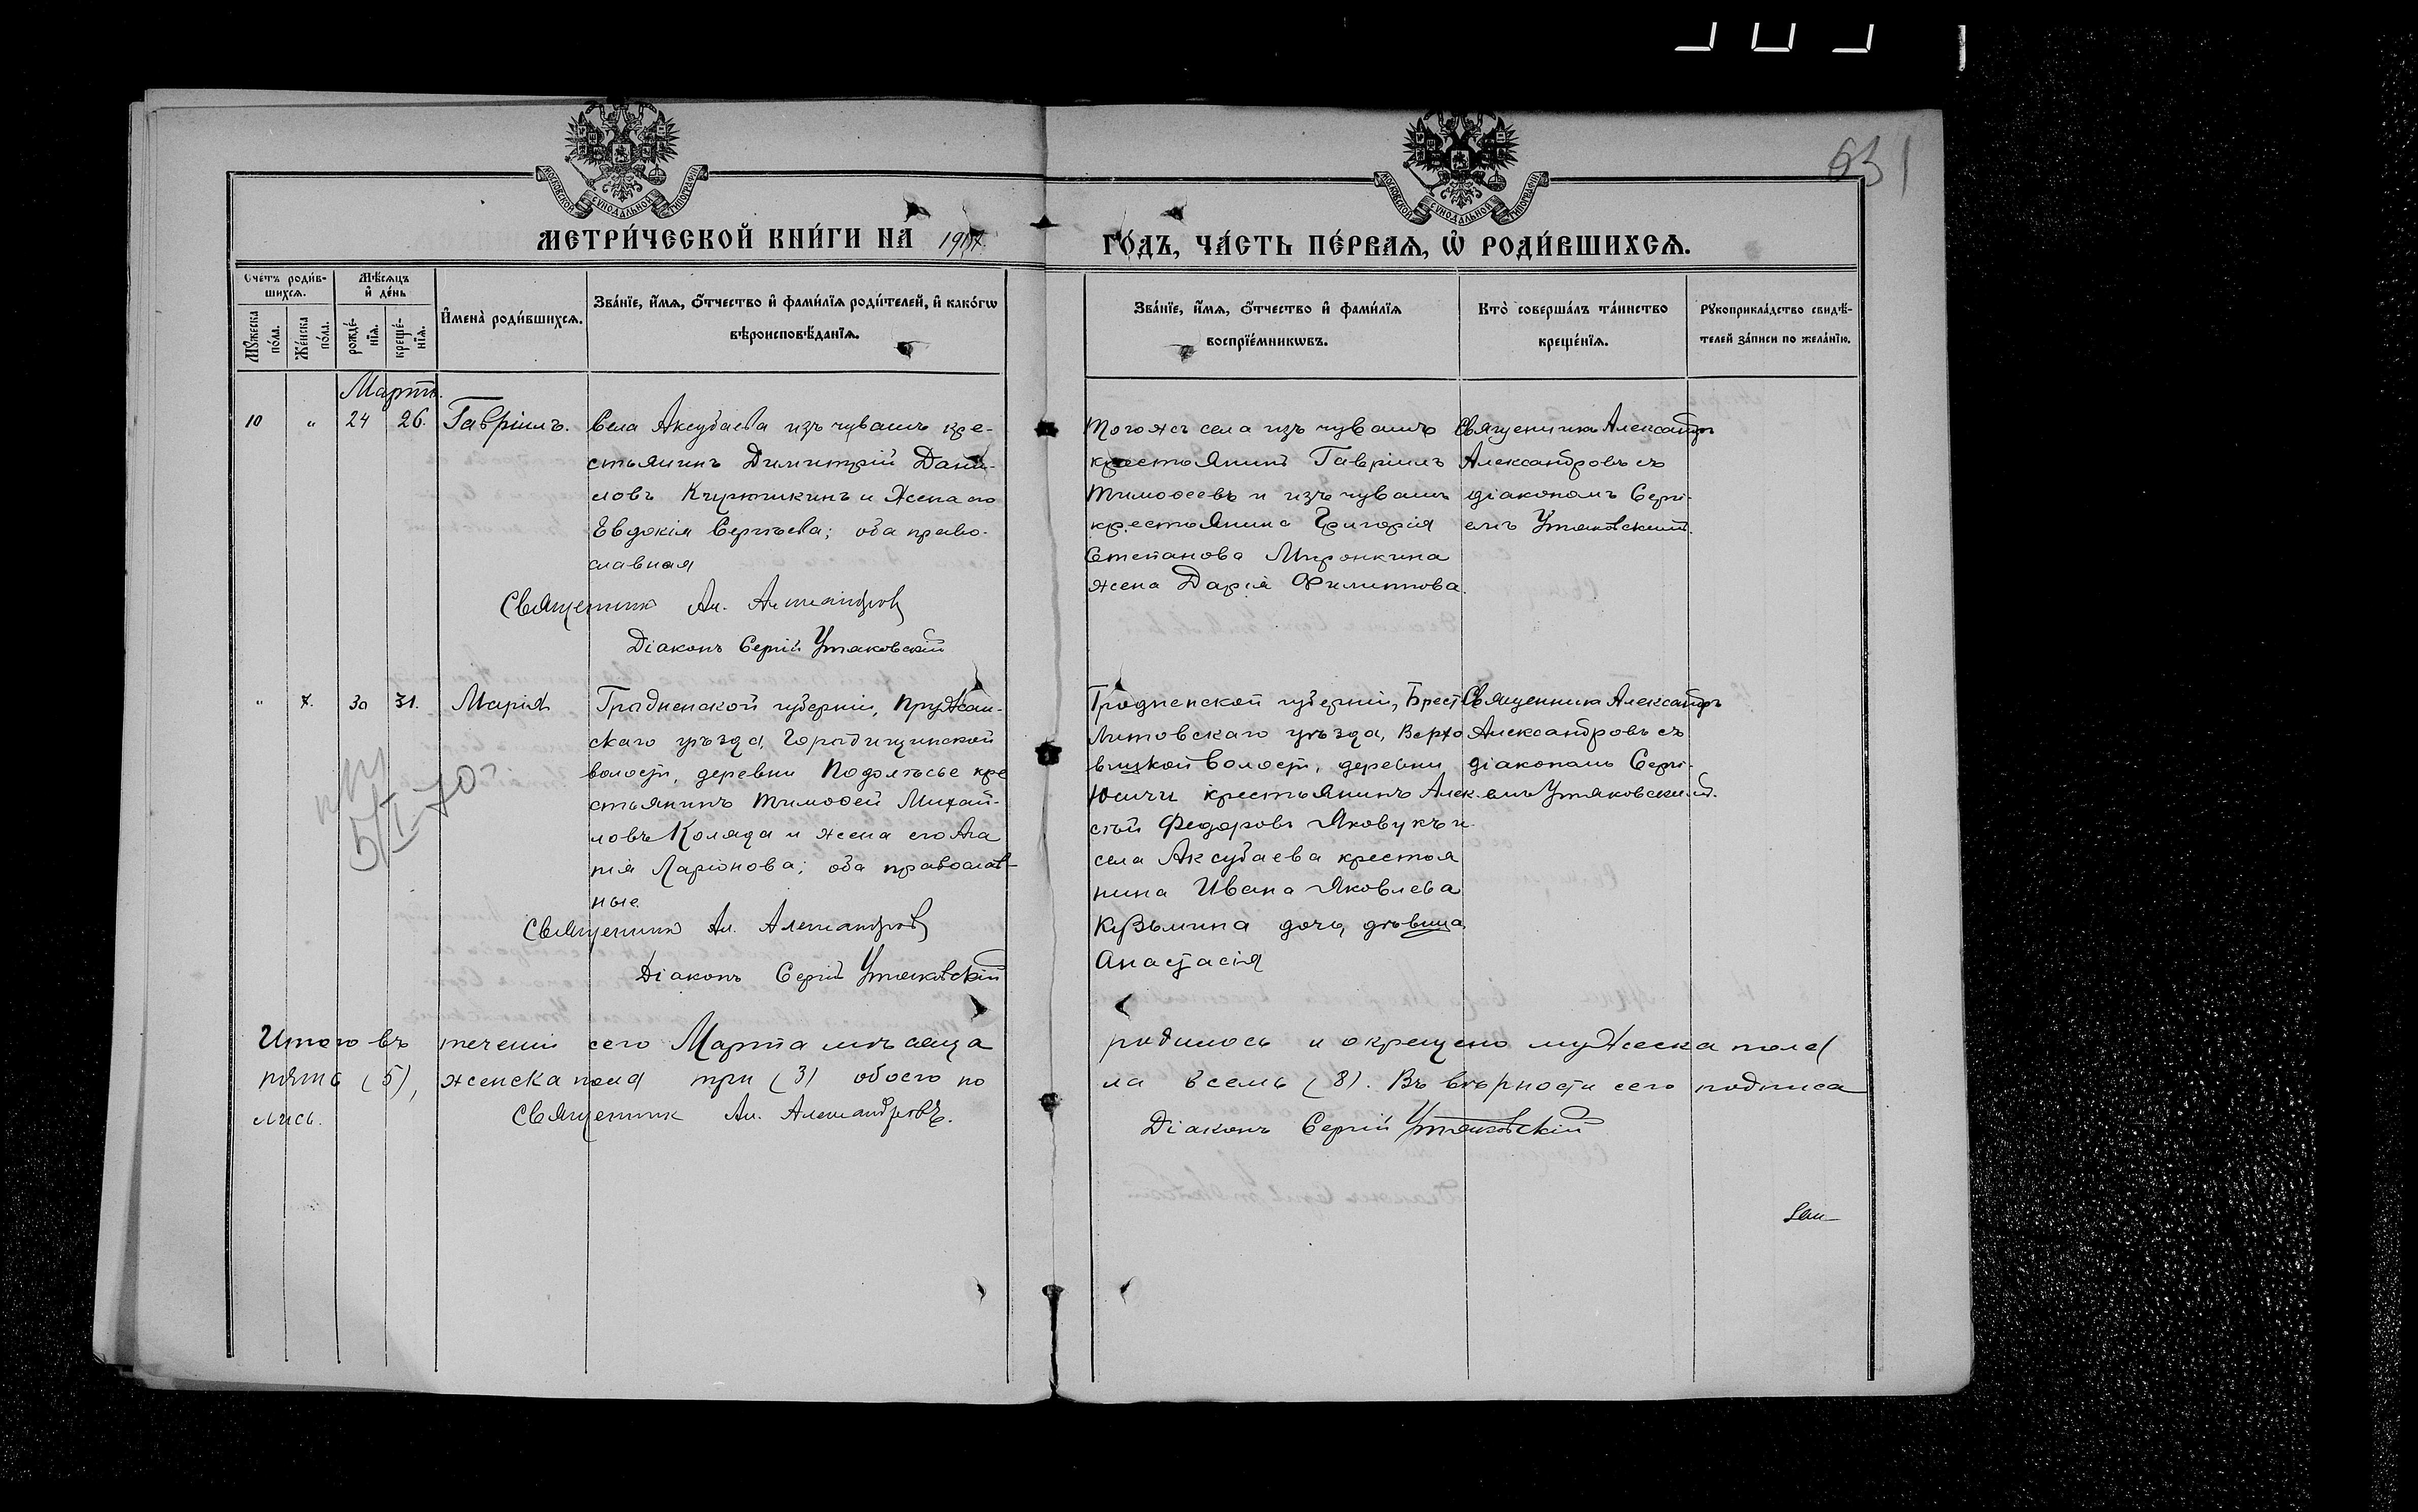 631
МОСКОВСКОЙ СѴНОДАЛЬНОЙ ТИПОГРАФІИ
МОСКОВСКОЙ СѴНОДАЛЬНОЙ ТИПОГРАФІИ
МЕТРИ́ЧЕСКОЙ КНИ́ГИ НА 1917
ГО́ДЪ, ЧА́СТЬ ПЕ́РВАѦ, Ѡ҆ РОДИ́ВШИХСѦ.
Сче́тъ роди́в-
шихсѧ.
Мѣ́сѧцъ
и҆ де́нь
Мꙋ́жеска
по́ла.
Же́нска
по́ла.
рожде́-
нїѧ.
креще́-
нїѧ.
И҆мена̀ роди́вшихсѧ.
Зва́нїе, и҆́мѧ, ѻ҆́тчество и҆ фами́лїѧ роди́телей, и҆ како́гѡ
вѣроисповѣ́данїѧ.
Зва́нїе, и҆́мѧ, ѻ҆́тчество и҆ фами́лїѧ
воспрїе́мникѡвъ.
Кто̀ соверша́лъ та́инство
креще́нїѧ.
Рꙋкоприкла́дство свидѣ́-
телей за́писи по жела́нїю.
Мартъ.
10 " 24 26. Гавріилъ.
Села Аксубаева изъ чувашъ кре-
стьянинъ Димитрій Дани-
ловъ Кирюшкинъ и жена его
Евдокія Сергѣева; оба право-
славная
Священникъ Ал. Александровъ
Діаконъ Сергій Утяковскій
Тогожъ села изъ чувашъ
крестьянинъ Гавріилъ
Тимоѳеевъ и изъ чувашъ
крестьянина Григорія
Степанова Миронкина
жена Дарія Филиппова.
Священникъ Александръ
Александровъ съ
діакономъ Сергі-
емъ Утяковскимъ.
" 7. 30 31. Марія
Гродненской губерніи, Пружан-
скаго уѣзда, Городищинской
волости, деревни Подолѣсье кре
стьянинъ Тимоѳей Михай-
ловъ Коляда и жена его Ага
пія Ларіонова; оба православ-
ные.
Священникъ Ал. Александровъ
Діаконъ Сергій Утяковскій
5/I-70
Гродненской губерніи, Брест
Литовскаго уѣзда, Верхо
вицкой волости, деревни
Юсичи крестьянинъ Алек-
сѣй Федоровъ Яковукъ и
села Аксубаева крестья
нина Ивана Яковлева
Кузьмина дочь, дѣвица
Анастасія
Священникъ Александръ
Александровъ съ
діакономъ Сергі-
емъ Утяковскимъ.
Итого въ теченіи сего Марта мѣсяца родилось и окрещено мужеска пола
пять (5), женска пола три (3) обоего по ла восемь (8). Въ вѣрности сего подписа
лись. Священникъ Ал. Александровъ.
Діаконъ Сергій Утяковскій